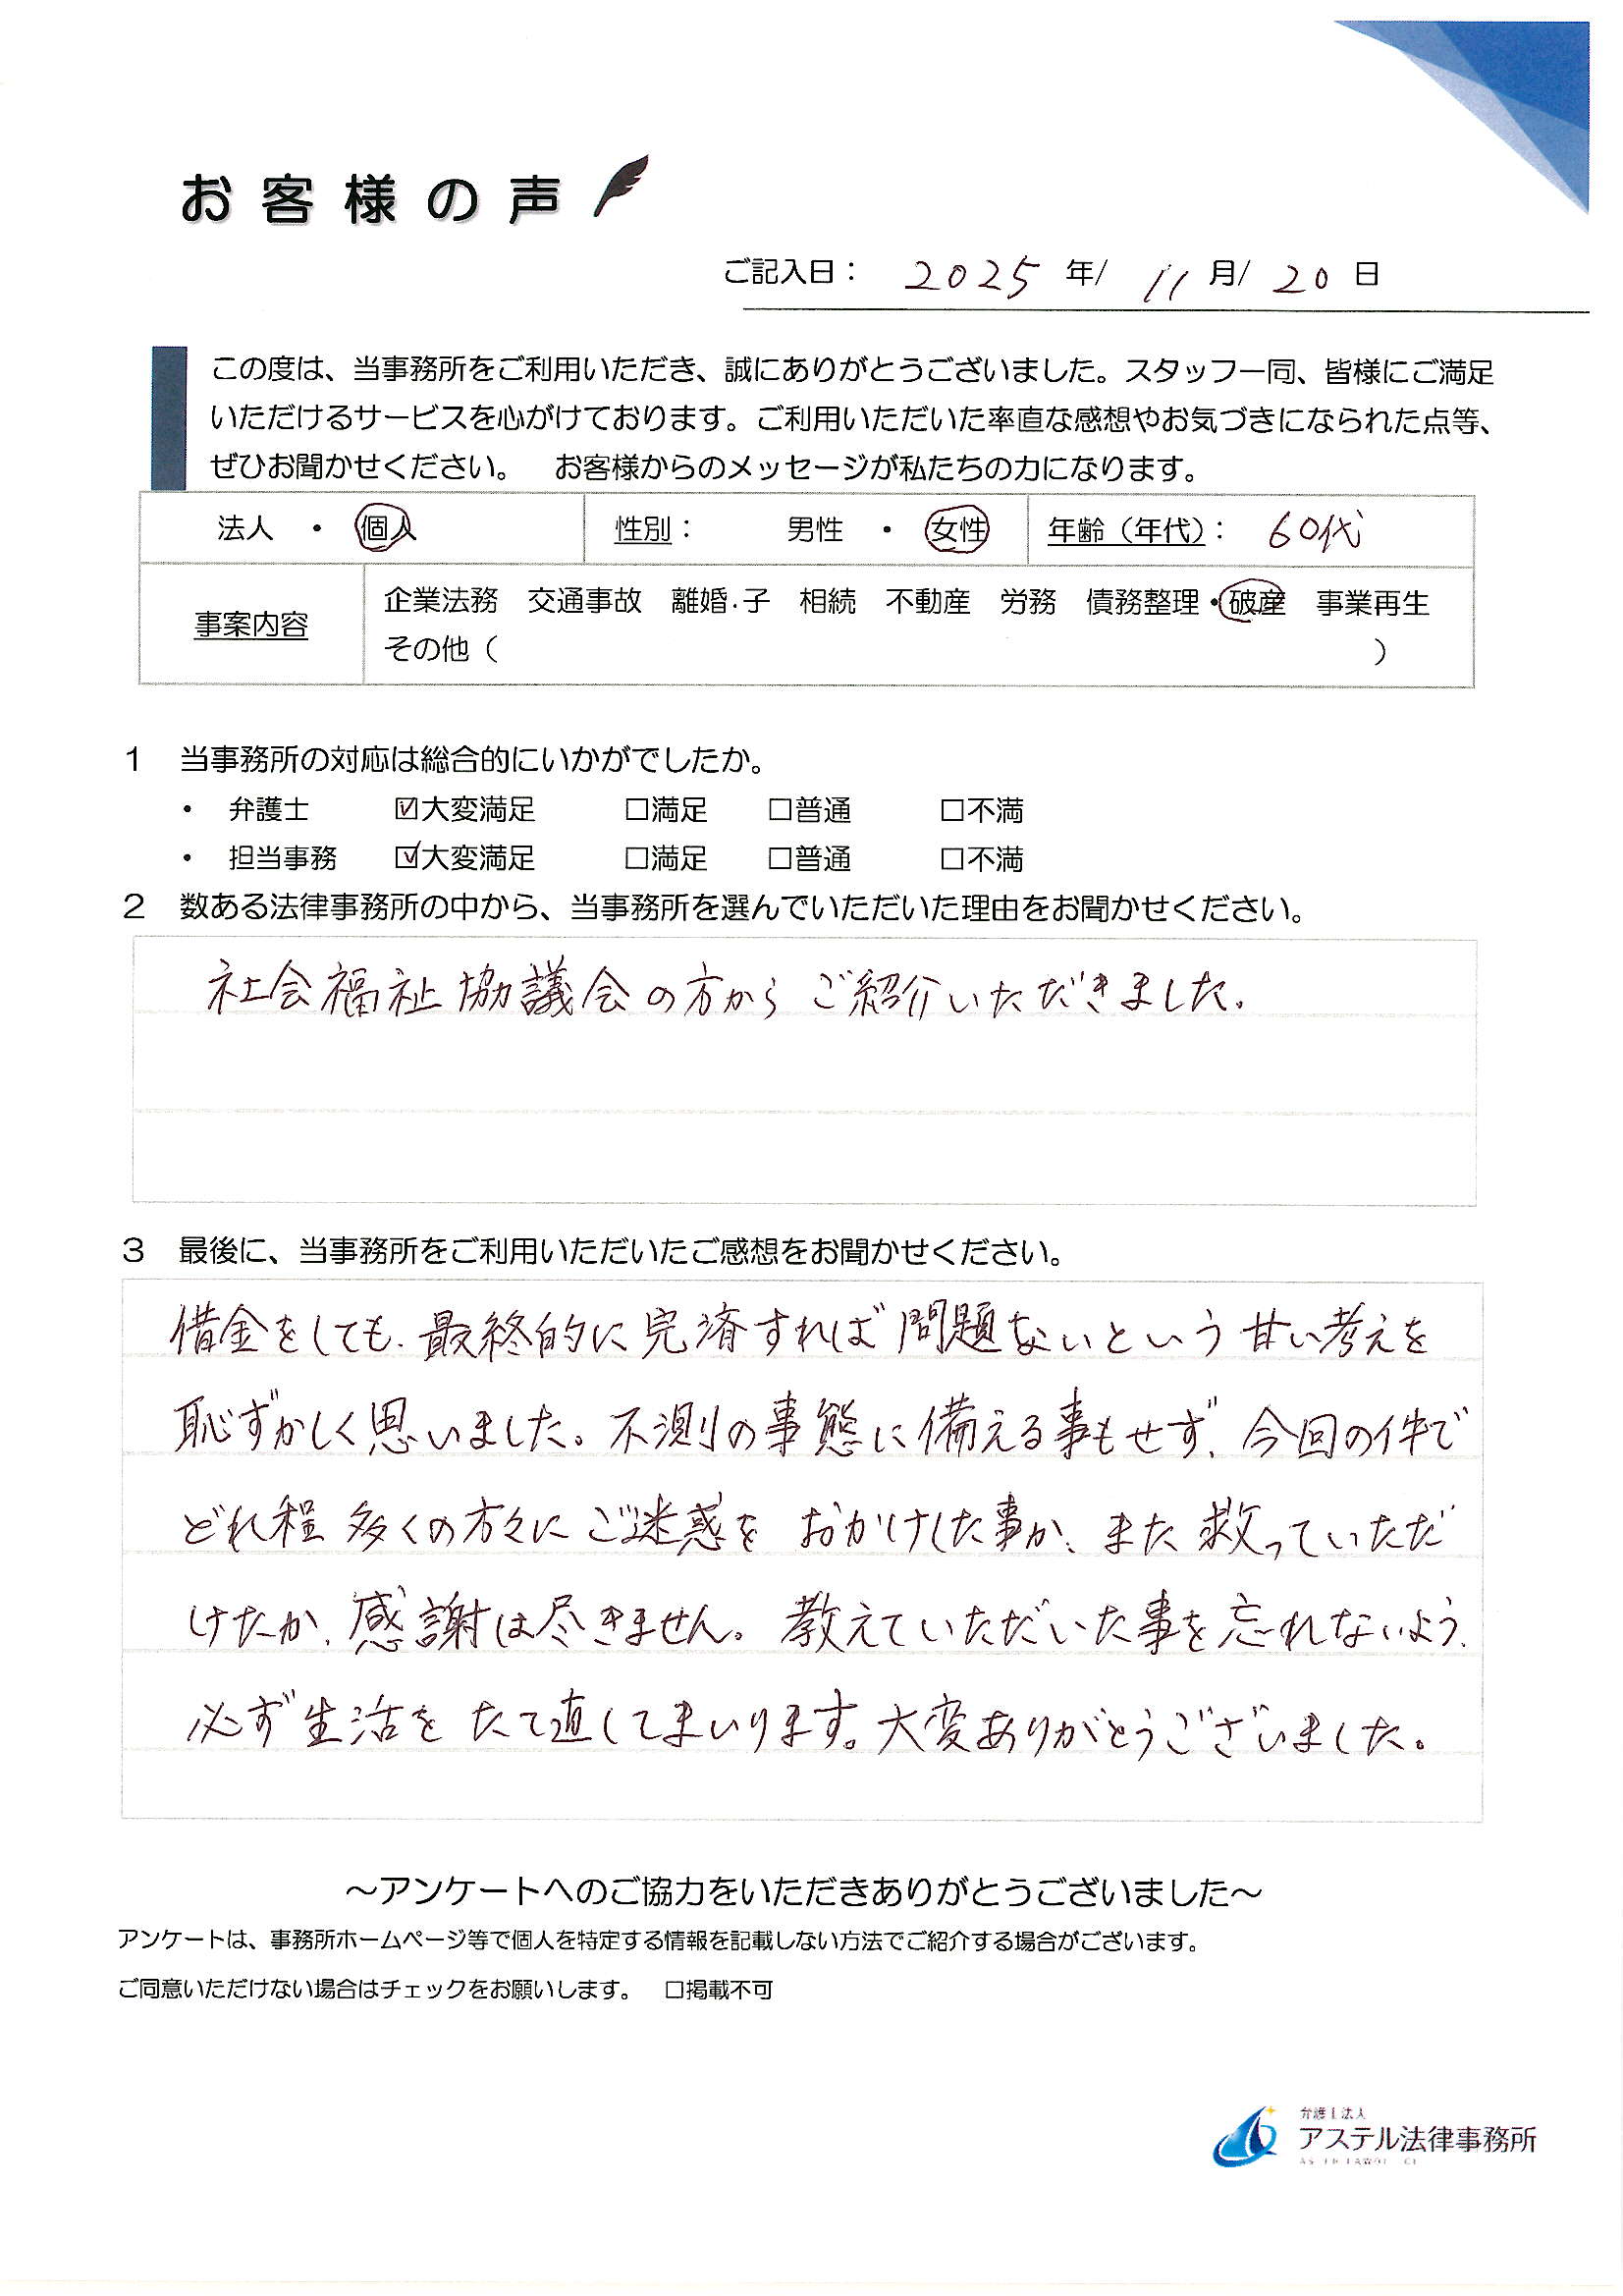 お客様の声
ご記入日： 2025 年/ 11 月/ 20 日
この度は、当事務所をご利用いただき、誠にありがとうございました。スタッフ一同、皆様にご満足
いただけるサービスを心がけております。ご利用いただいた率直な感想やお気づきになられた点等、
ぜひお聞かせください。 お客様からのメッセージが私たちの力になります。
法人 ・ 個人 性別： 男性 ・ 女性 年齢（年代）： 60代
事案内容 企業法務 交通事故 離婚・子 相続 不動産 労務 債務整理・破産 事業再生
その他（ ）
1 当事務所の対応は総合的にいかがでしたか。
・ 弁護士 ☑大変満足 □満足 □普通 □不満
・ 担当事務 ☑大変満足 □満足 □普通 □不満
2 数ある法律事務所の中から、当事務所を選んでいただいた理由をお聞かせください。
社会福祉協議会の方からご紹介いただきました。
3 最後に、当事務所をご利用いただいたご感想をお聞かせください。
借金をしても、最終的に完済すれば問題ないという甘い考えを
恥ずかしく思いました。不測の事態に備える事もせず、今回の件で
どれ程多くの方々にご迷惑をおかけした事か、また救っていただ
けたか、感謝は尽きません。教えていただいた事を忘れないよう、
必ず生活をたて直してまいります。大変ありがとうございました。
～アンケートへのご協力をいただきありがとうございました～
アンケートは、事務所ホームページ等で個人を特定する情報を記載しない方法でご紹介する場合がございます。
ご同意いただけない場合はチェックをお願いします。 □掲載不可
弁護士法人
アステル法律事務所